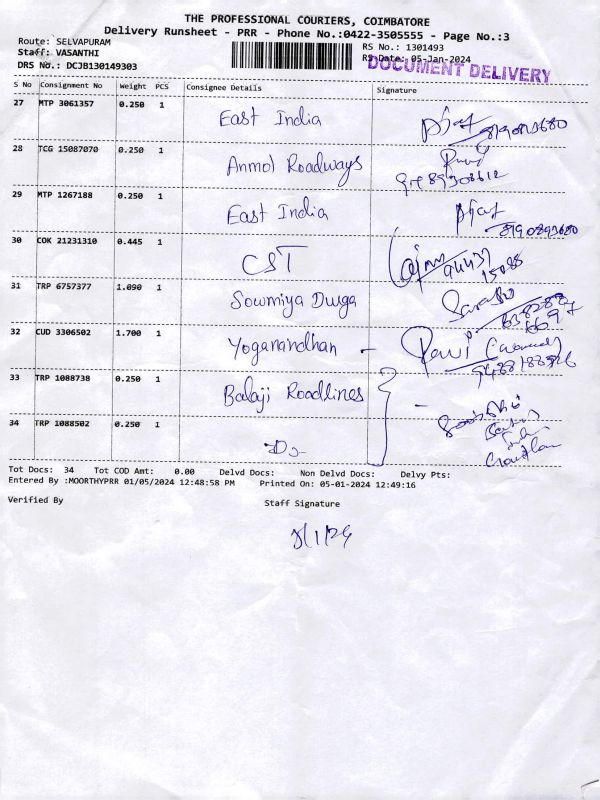 THE PROFESSIONAL COURIERS, COIMBATORE
Delivery Runsheet - PRR - Phone No.:0422-3505555 - Page No.:3
Route: SELVAPURAM
RS No.: 1301493
Staff: VASANTHI
RS Date: 05-Jan-2024
DRS No.: DCJB130149303
DOCUMENT DELIVERY
S No Consignment No Weight PCS Consignee Details Signature
27 MTP 3061357 0.250 1 East India
28 TCG 15087070 0.250 1 Anmol Roadways
29 MTP 1267188 0.250 1 East India
30 COK 21231310 0.445 1 CST
31 TRP 6757377 1.090 1 Sowmiya Durga
32 CUD 3306502 1.700 1 Yoganandhan -
33 TRP 1088738 0.250 1 Balaji Roadlines
34 TRP 1088502 0.250 1 Do-
Tot Docs: 34 Tot COD Amt: 0.00 Delvd Docs: Non Delvd Docs: Delvy Pts:
Entered By :MOORTHYPRR 01/05/2024 12:48:58 PM Printed On: 05-01-2024 12:49:16
Verified By Staff Signature
5/1/24